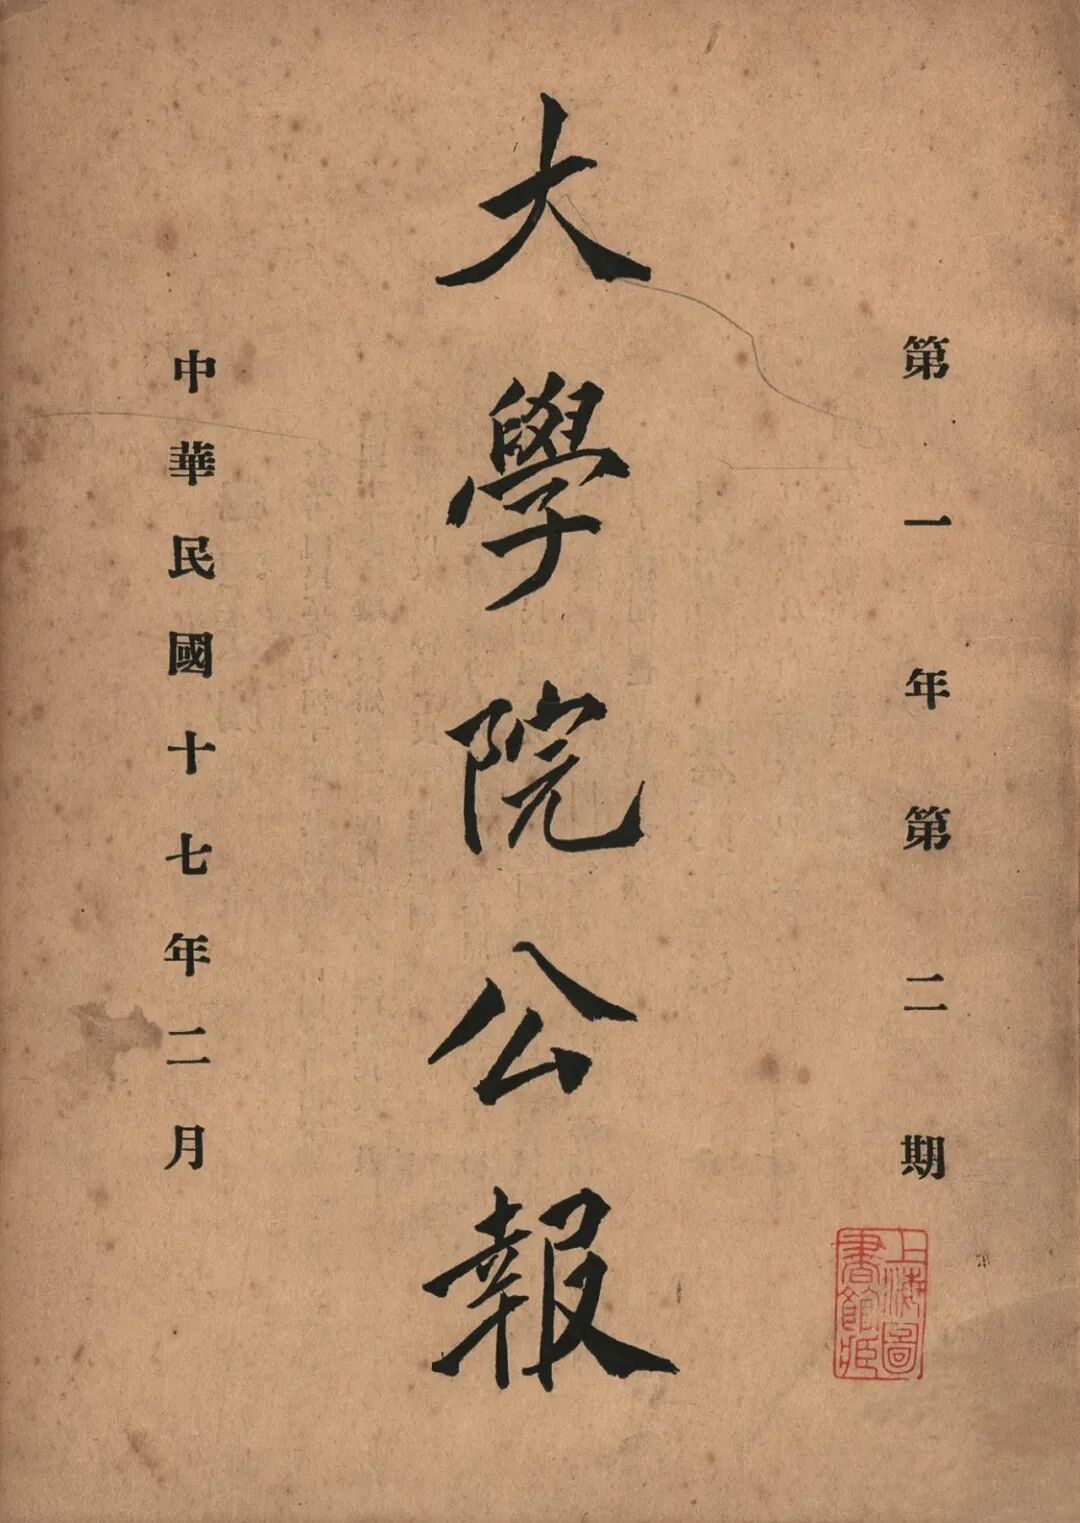 第一年第二期
大學院公報
中華民國十七年二月
上海圖
書館藏